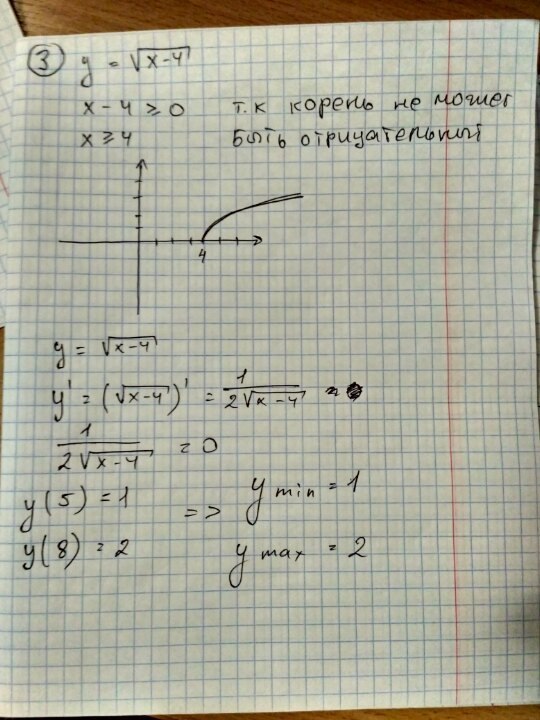 ③ y = √(x-4)
x - 4 ≥ 0 т.к корень не может
x ≥ 4 быть отрицательный
4
y = √(x-4)
y' = (√(x-4))' = 1/(2√(x-4)) =
1/(2√(x-4)) = 0
y(5) = 1 => y min = 1
y(8) = 2 y max = 2